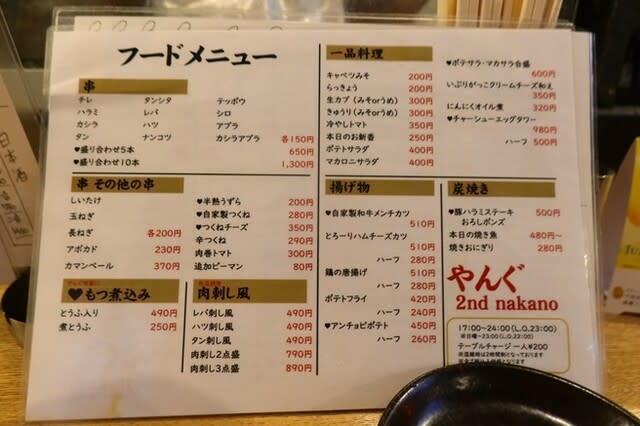 フードメニュー
串
チレ タンシタ テッポウ
ハラミ レバ シロ
カシラ ハツ アブラ
タン ナンコツ カシラアブラ 各150円
♥盛り合わせ5本 650円
♥盛り合わせ10本 1,300円
串 その他の串
しいたけ
玉ねぎ
長ねぎ 各200円
アボカド 230円
カマンベール 370円
♥半熟うずら 200円
♥自家製つくね 280円
♥つくねチーズ 350円
辛つくね 290円
肉巻トマト 300円
追加ピーマン 80円
♥もつ煮込み
とうふ入り 490円
煮とうふ 250円
肉刺し風
レバ刺し風 490円
ハツ刺し風 490円
タン刺し風 490円
肉刺し2点盛 790円
肉刺し3点盛 890円
一品料理
キャベツみそ 200円
らっきょう 200円
生カブ(みそorうめ) 300円
きゅうり(みそorうめ) 300円
冷やしトマト 350円
本日のお新香 250円
ポテトサラダ 400円
マカロニサラダ 400円
♥ポテサラ・マカサラ合盛
600円
いぶりがっこクリームチーズ和え
350円
にんにくオイル煮 320円
♥チャーシューエッグタワー
980円
ハーフ 500円
揚げ物
♥自家製和牛メンチカツ
510円
とろーりハムチーズカツ
510円
ハーフ 280円
鶏の唐揚げ 510円
ハーフ 280円
ポテトフライ 420円
ハーフ 240円
♥アンチョビポテト 450円
ハーフ 260円
炭焼き
♥豚ハラミステーキ 500円
おろしポンズ
本日の焼き魚 480円~
焼きおにぎり 280円
やんぐ
2nd nakano
17:00~24:00(L.O.23:00)
※日曜~23:00(L.O.22:00)
テーブルチャージ 一人¥200
※混雑時は2時間制となっております